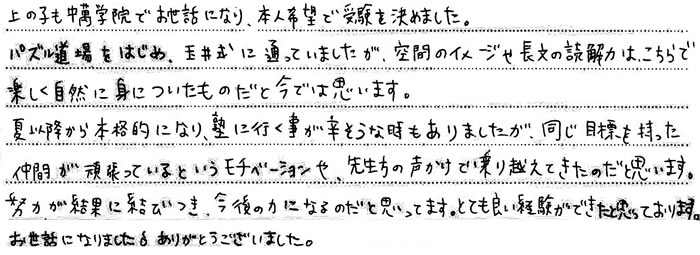 上の子も中萬学院でお世話になり、本人希望で受験を決めました。
パズル道場をはじめ、玉井式に通っていましたが、空間のイメージや長文の読解力は、こちらで
楽しく自然に身についたものだと今では思います。
夏以降から本格的になり、塾に行く事が辛そうな時もありましたが、同じ目標を持った
仲間が頑張っているというモチベーションや、先生方の声かけで乗り越えてきたのだと思います。
努力が結果に結びつき、今後の力になるのだと思ってます。とても良い経験ができたと思っております。
お世話になりました。ありがとうございました。